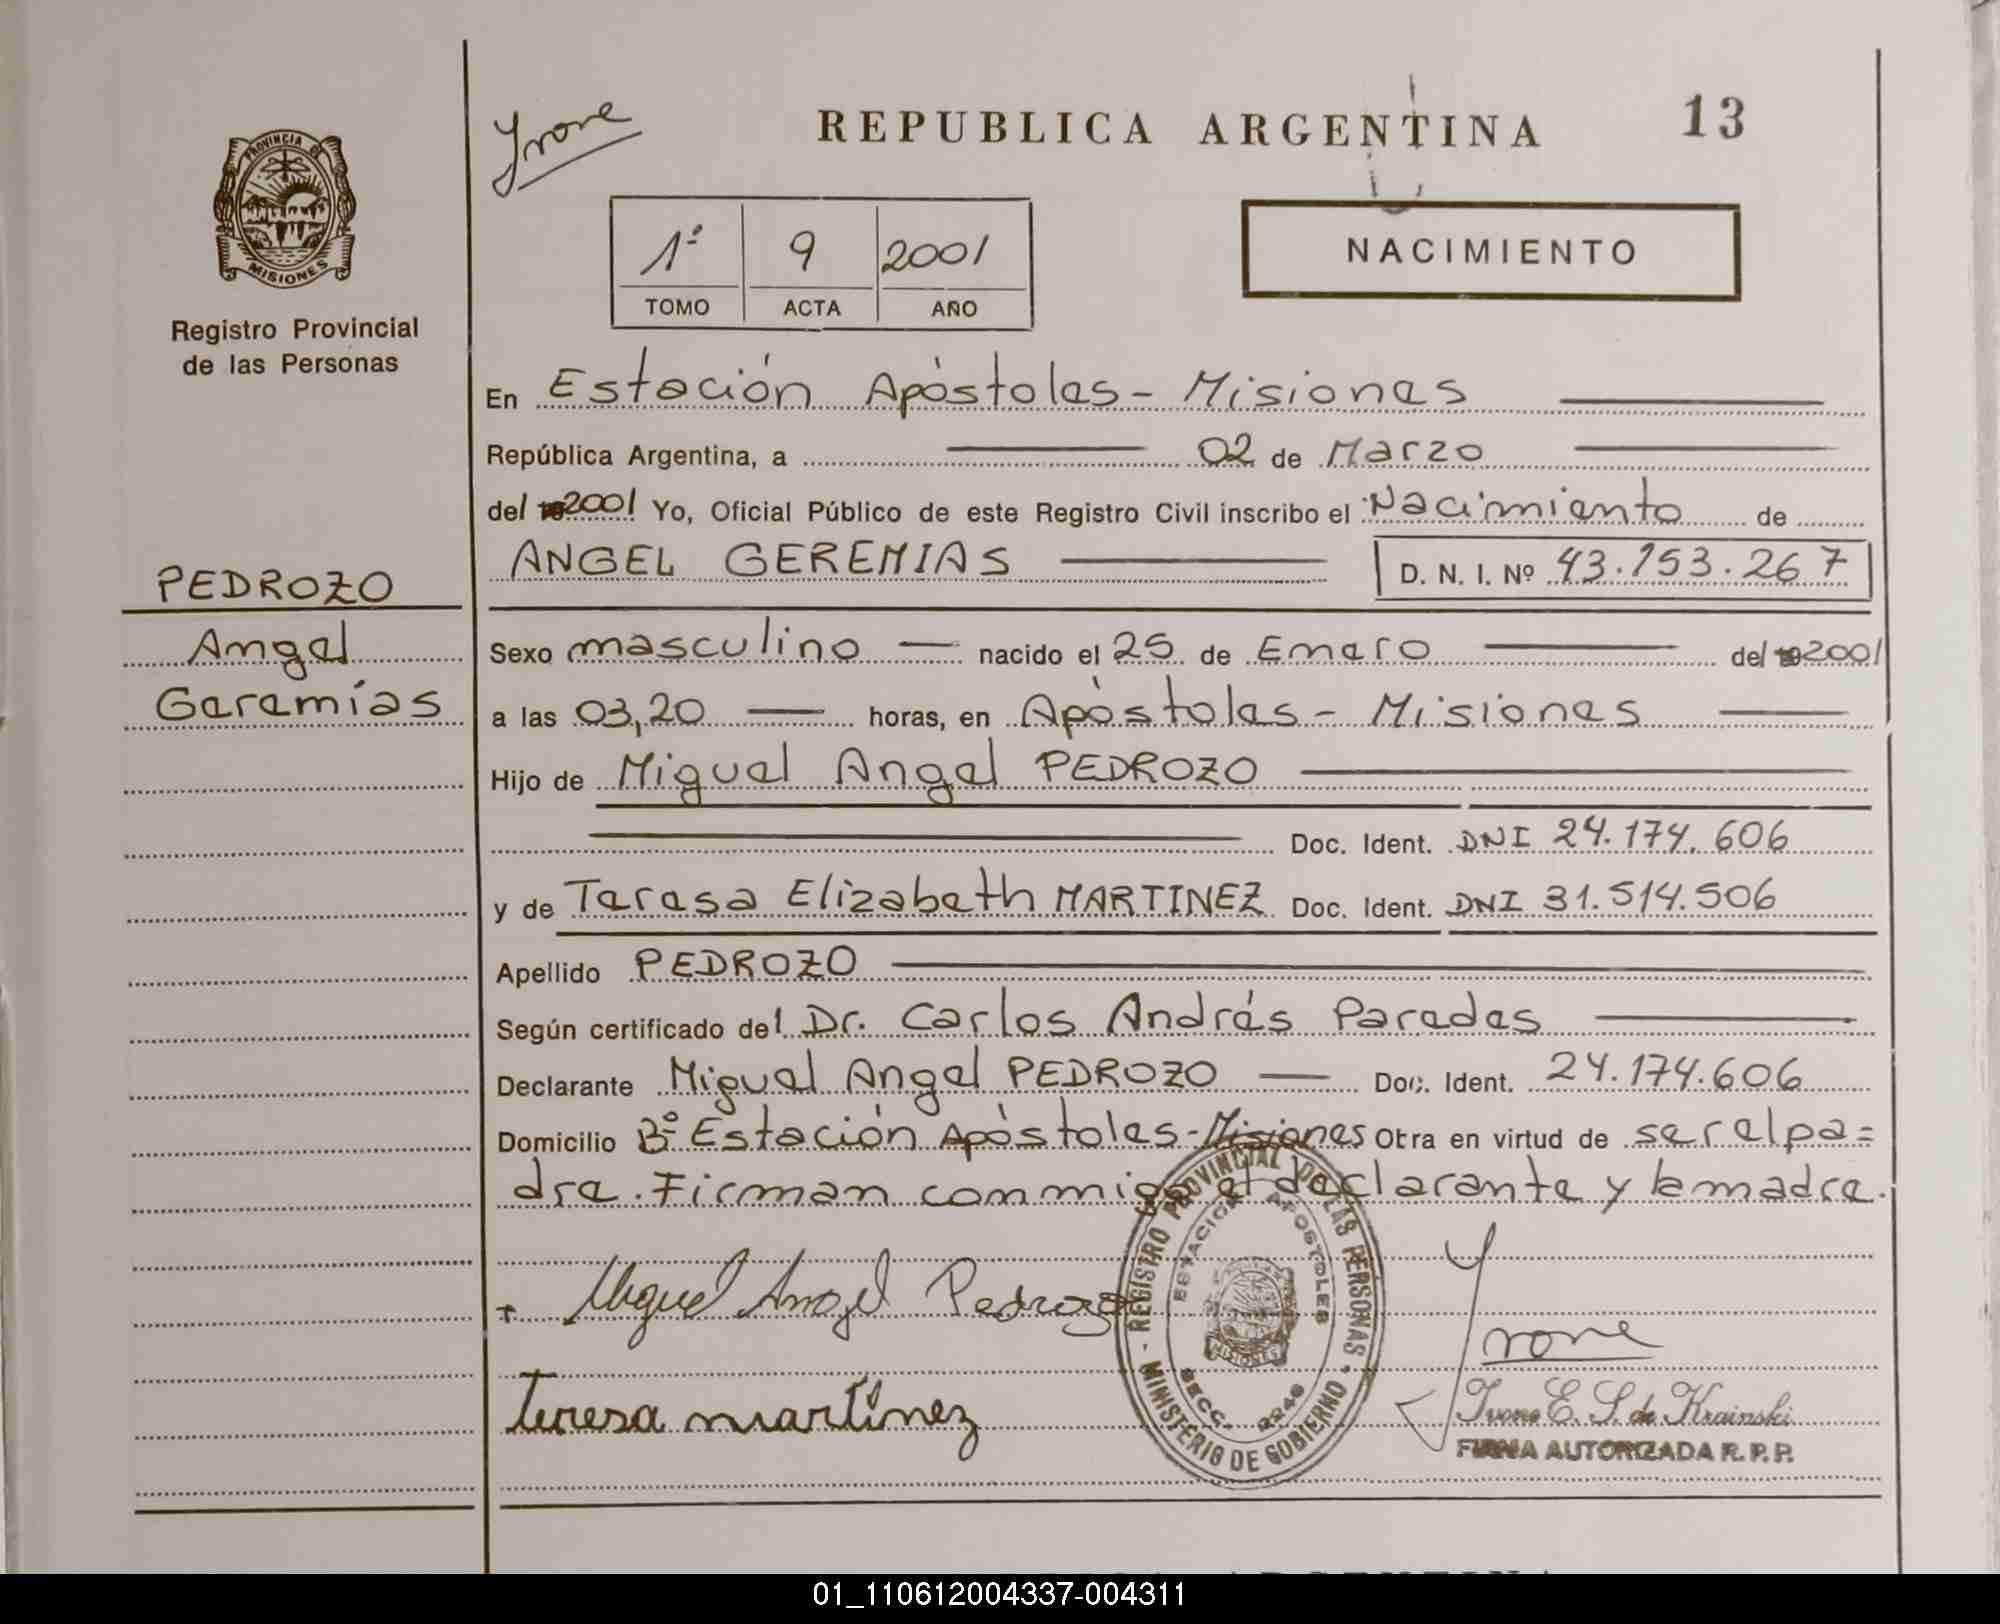 Yvone
REPUBLICA ARGENTINA
13
PROVINCIA DE
MISIONES
Registro Provincial
de las Personas
1º 9 2001
TOMO ACTA AÑO
NACIMIENTO
En Estación Apóstoles - Misiones
República Argentina, a 02 de Marzo
del 192001 Yo, Oficial Público de este Registro Civil inscribo el Nacimiento de
ANGEL GEREMIAS D. N. I. Nº 43.153.267
PEDROZO
Angel
Geremías
Sexo masculino nacido el 25 de Enero del 192001
a las 03,20 horas, en Apóstoles - Misiones
Hijo de Miguel Angel PEDROZO
Doc. Ident. DNI 24.174.606
y de Teresa Elizabeth MARTINEZ Doc. Ident. DNI 31.514.506
Apellido PEDROZO
Según certificado del Dr. Carlos Andrés Paredes
Declarante Miguel Angel PEDROZO Doc. Ident. 24.174.606
Domicilio Bº Estación Apóstoles - Misiones Obra en virtud de ser el pa=
dre. Firman conmigo el declarante y la madre.
Miguel Angel Pedrozo
Teresa martínez
REGISTRO PROVINCIAL DE LAS PERSONAS
MINISTERIO DE GOBIERNO
ESTACION APOSTOLES
SECC. 2240
MISIONES
Yvone
Ivone E. S. de Krainski
FIRMA AUTORIZADA R. P. P.
01_110612004337-004311